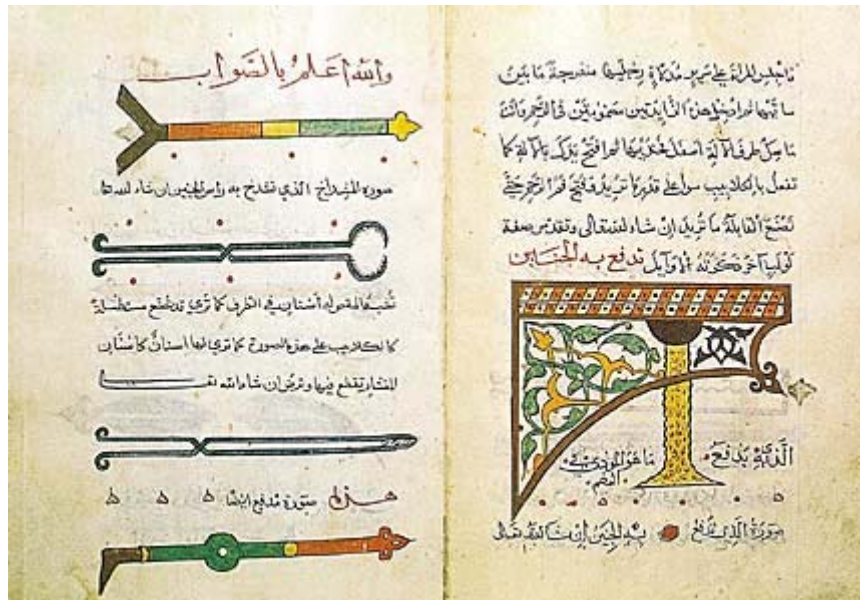 المراة على سرير مدلاة رجليها منفرجة ما بين
ساقيها ثم ادخل هذه الزايدتين مضمومتين في الرحم وانت
ماسك طرف الآلة اسفل فخذيها ثم افتح يدك بالآلة كما
تفعل بالكلاليب سوا على قدر ما تريد فتح فم الرحم حتى
تصنع القابلة ما تريد ان شاء الله تعالى وتقدس صفة
لولب آخر ذكرته الاوايل تدفع به الجنين
الذي يدفع
صورة الذي يدفع به الجنين ان شا الله تعالى
والله اعلم بالصواب
صورة المشداخ الذي تشدخ به راس الجنين ان شاء الله تعا
تشبه المقص له أسنان في الطرف كما ترى قد تصنع مستطيلة
كالكلاليب على هذه الصورة كما ترى لها اسنان كاسنان
المنشار تقطع فيها وترض ان شاء الله تعـ
هذه صورة مدفع ايضا